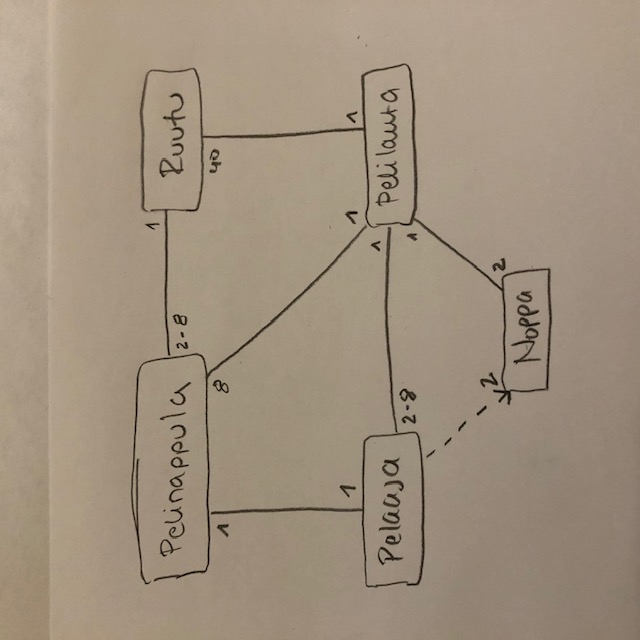 Pelinappula
2-8
1
Ruutu
1
8
40
1
1
1
Pelaaja
2-8
1
1
Pelilauta
2
2
Noppa